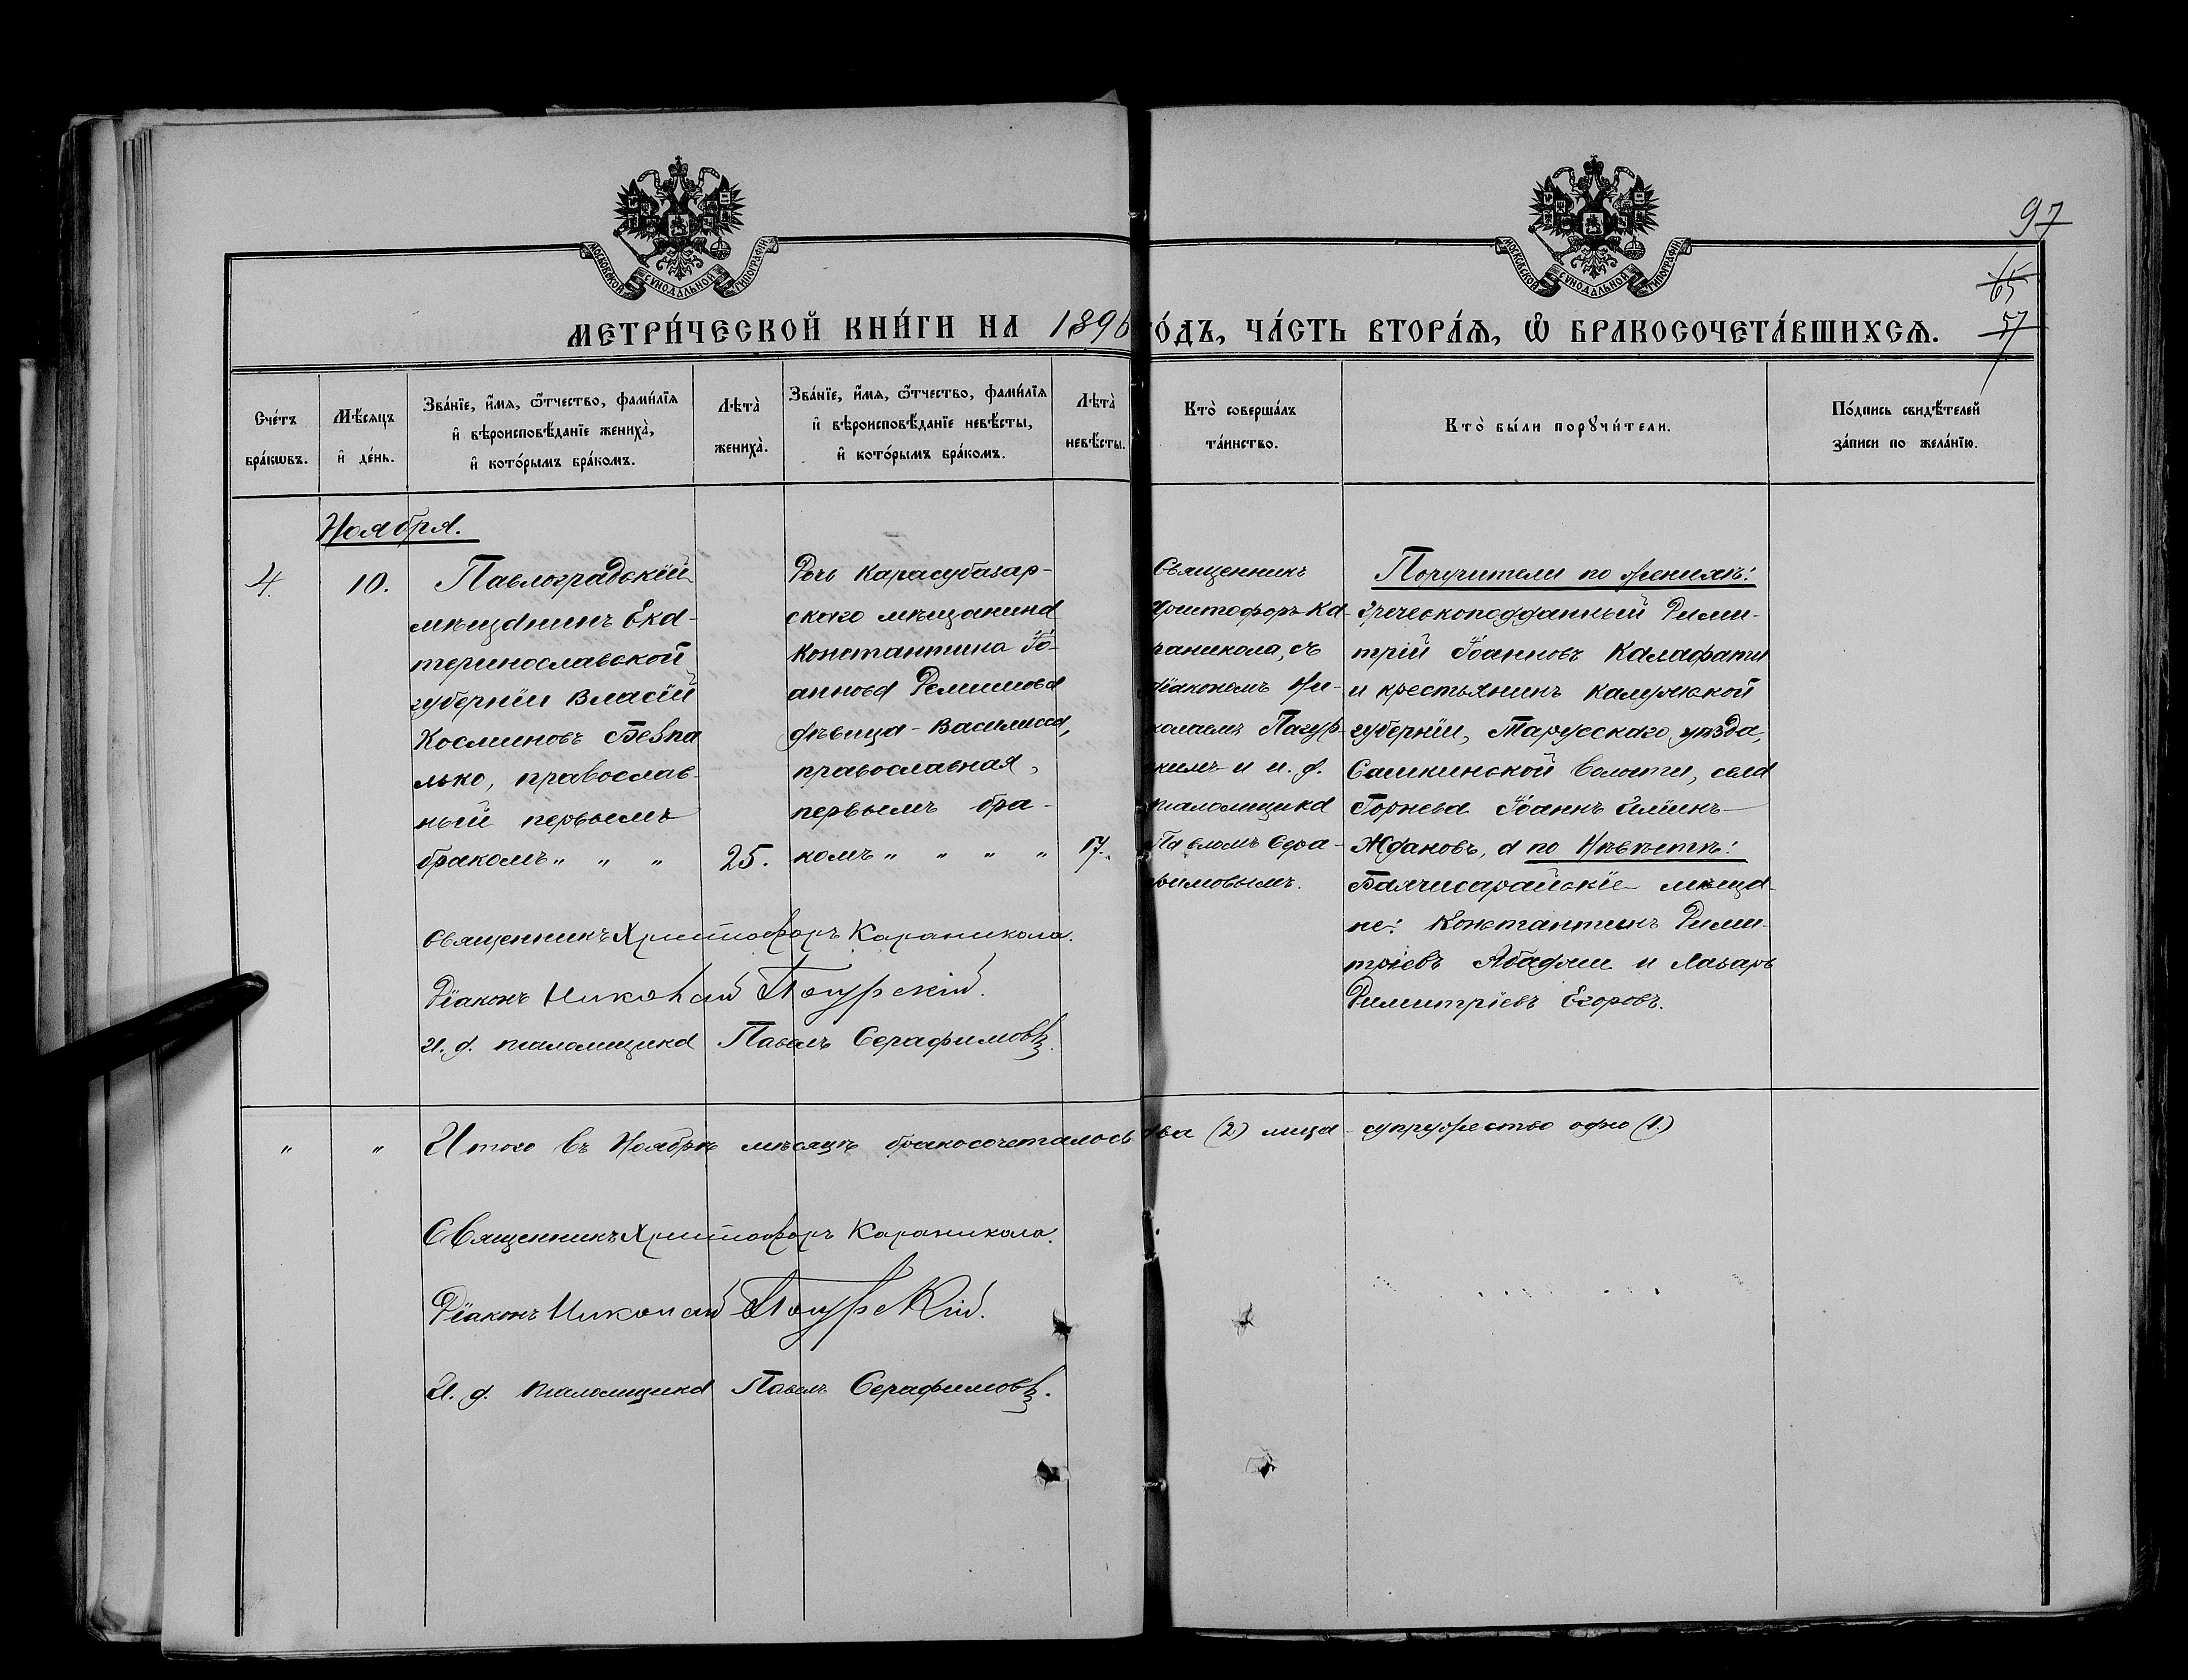 МОСКОВСКОЙ СУНОДАЛЬНОЙ ТИПОГРАФІИ
МОСКОВСКОЙ СУНОДАЛЬНОЙ ТИПОГРАФІИ
97
65
57
МЕТРИ́ЧЕСКОЙ КНИ́ГИ НА 1896 ГО́ДЪ, ЧА́СТЬ ВТОРА́Я, Ѿ БРАКОСОЧЕТА́ВШИХСЯ.
Сче́тъ
бра́кѡвъ.
Мѣ́сяцъ
и҆ де́нь.
Зва́нїе, и҆́мя, ѻ҆́тчество, фами́лїя
и҆ вѣроисповѣ́данїе жениха̀,
и҆ кото́рымъ бра́комъ.
Лѣта̀
жениха̀.
Зва́нїе, и҆́мя, ѻ҆́тчество, фами́лїя
и҆ вѣроисповѣ́данїе невѣ́сты,
и҆ кото́рымъ бра́комъ.
Лѣта̀
невѣ́сты.
Кто̀ соверша́лъ
та́инство.
Кто̀ бы́ли порꙋчи́тели.
По́дпись свидѣ́телей
за́писи по жела́нїю.
Ноября.
4.
10.
Павлоградскій
мѣщанинъ Ека-
теринославской
губерніи Власій
Косминовъ Безпа
лько, православ-
ный первымъ
бракомъ " " "
25.
Дочь Карасубазар-
скаго мѣщанина
Константина Іо-
аннова
дѣвица - Василисса,
православная,
первымъ бра-
комъ " " " "
17.
Священникъ
Христофоръ Ка-
раникола, съ
діакономъ Ни-
колаемъ
скимъ и и. д.
псаломщика
Павломъ Сера-
фимовымъ.
Поручители по женихѣ:
греческоподданный Дими-
трій Іоанновъ Калафати
и крестьянинъ Калужской
губерніи, Тарусскаго уѣзда,
Сашкинской волости, села
Іоаннъ Ильинъ
Ждановъ, а по Невѣстѣ:
Бахчисарайскіе мѣща-
не: Константинъ Дими-
тріевъ и Лазарь
Димитріевъ Егоровъ.
Священникъ Христофоръ Караникола.
Діаконъ Николай
И. д. псаломщика Павелъ Серафимовъ.
" " Итого въ Ноябрѣ мѣсяцѣ бракосочеталось два (2) лица - супружество одно (1.)
Священникъ Христофоръ Караникола.
Діаконъ Николай
И. д. псаломщика Павелъ Серафимовъ.